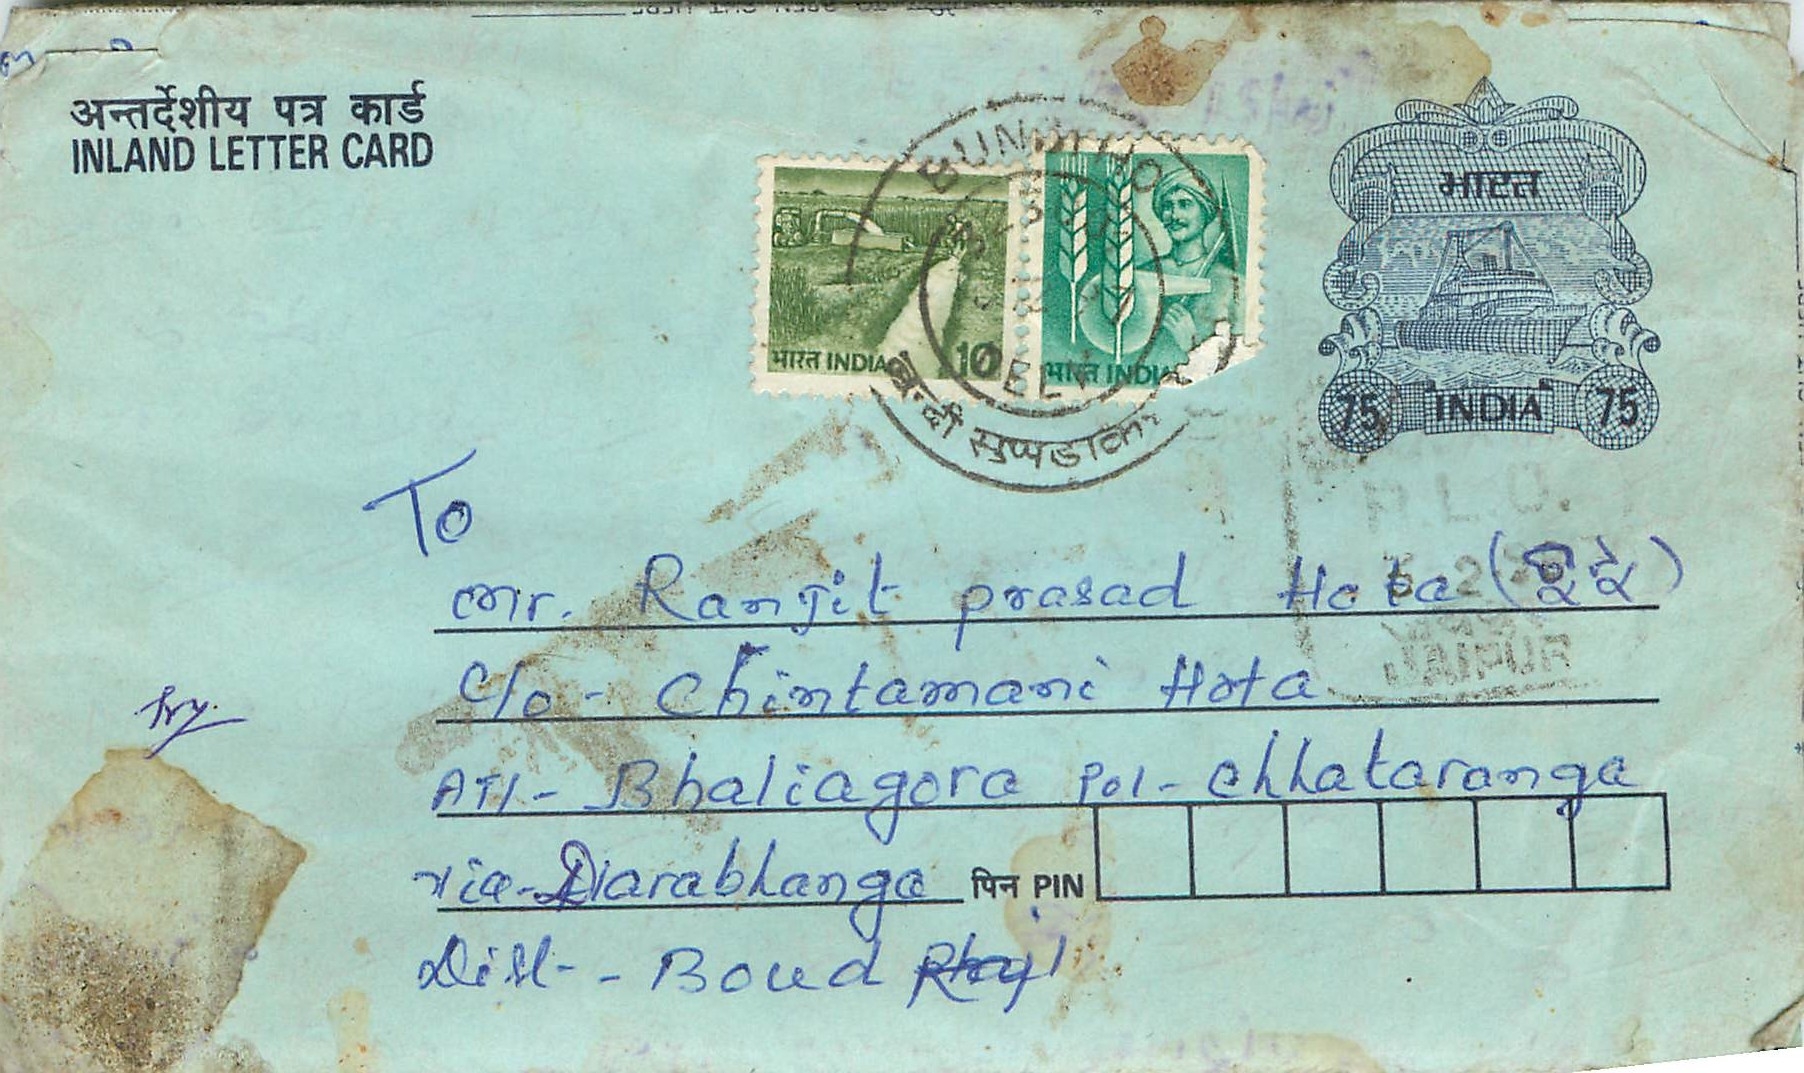 अन्तर्देशीय पत्र कार्ड
INLAND LETTER CARD
भारत INDIA 10
भारत INDIA
भारत
75 INDIA 75
R.L.O.
JAIPUR
To
Mr. Ranjit prasad Hota
C/o - Chintamani Hota
At/- Bhaliagora Po/- Chhataranga
via - Darabhanga पिन PIN
Dist - - Boud
try